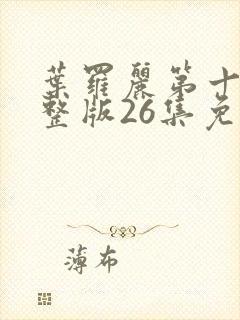 葉羅麗第十
整版26集免
薄布